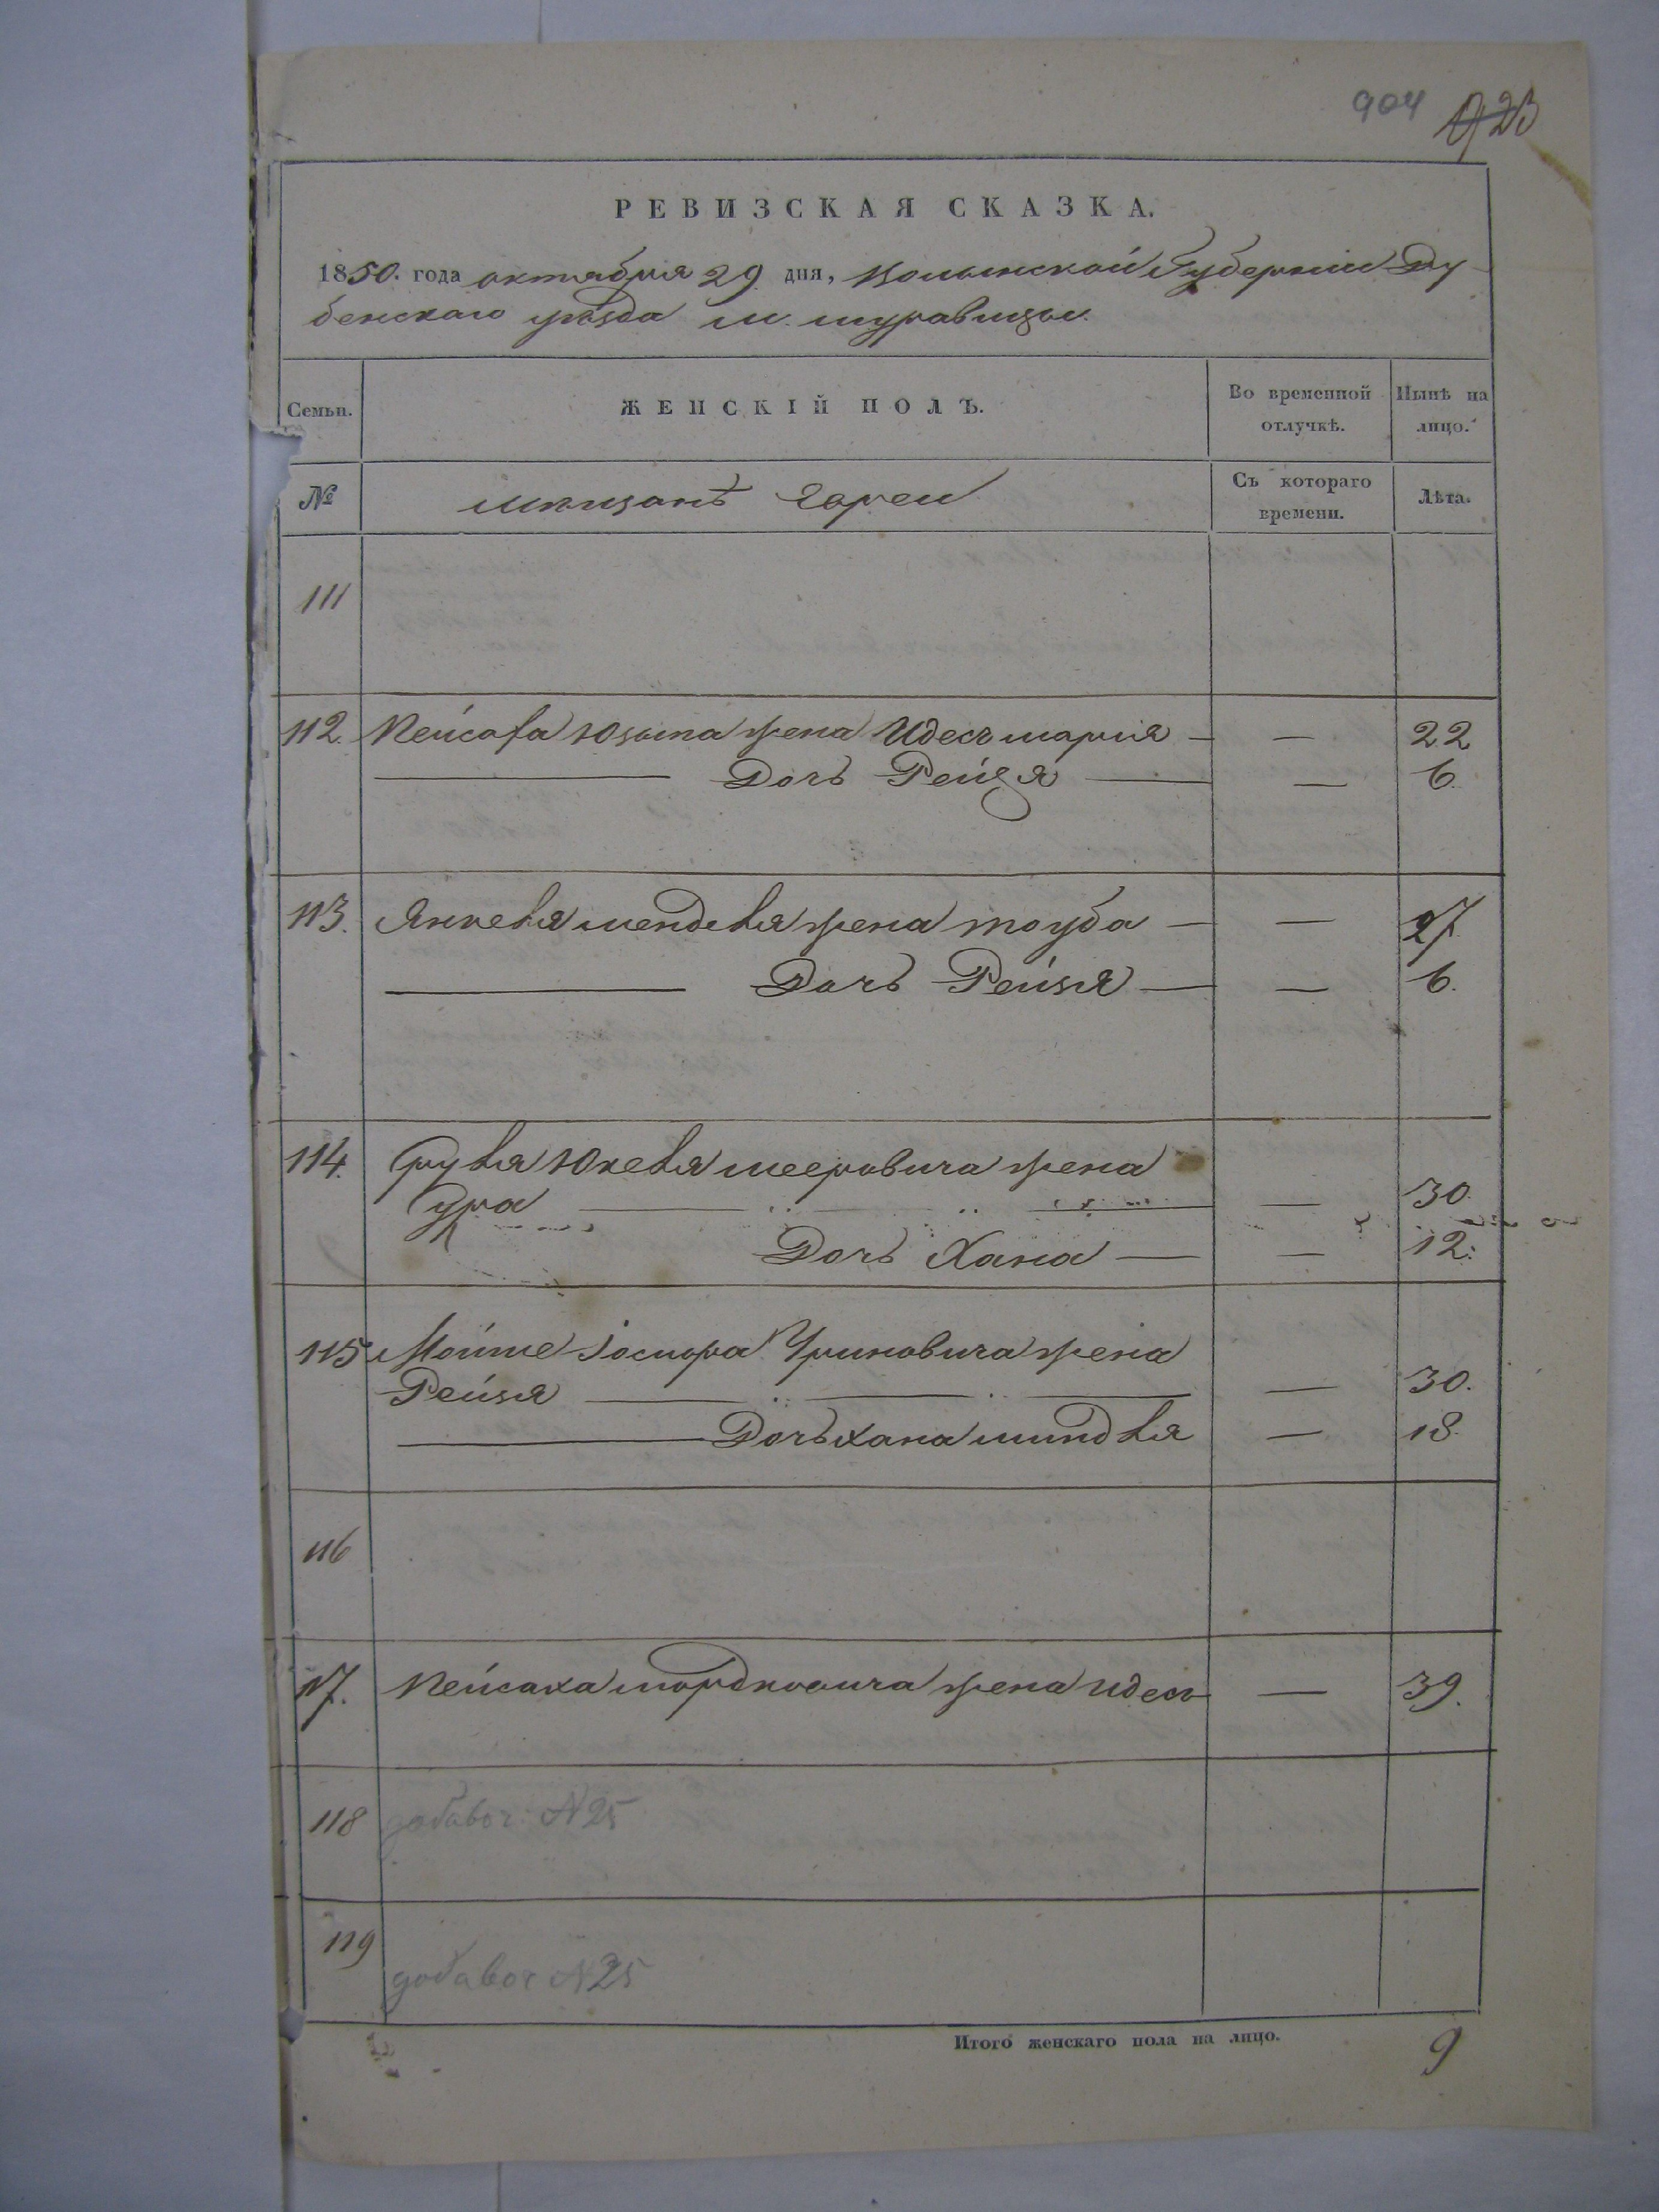 904 923
РЕВИЗСКАЯ СКАЗКА.
1850. года октября 29 дня, Волынской Губернии Ду
бенскаго уѣзда м. муравицы.
Семьи.
ЖЕНСКІЙ ПОЛЪ.
Во временной отлучкѣ.
Нынѣ на лицо.
№
мѣщанѣ Евреи
Съ котораго времени.
Лѣта.
111
112. Пейсаха Юзыпа жена Идесъ мария — — 22
Дочь Рейзя — — 6.
113. Янкеля менделя жена тоуба — — 27
Дочь Рейзя — — 6.
114. Сруля Юкеля мееровича жена
Сура — — 30.
Дочь Хана — — 12.
115 Мойше Іосиора Уриновича жена
Рейзя — — 30.
Дочь хана миндля — 18.
116
117. Пейсаха мордковича жена идесь — 39.
118 добавоч. N 25
119
добавоч N 25
Итого женскаго пола на лицо. 9